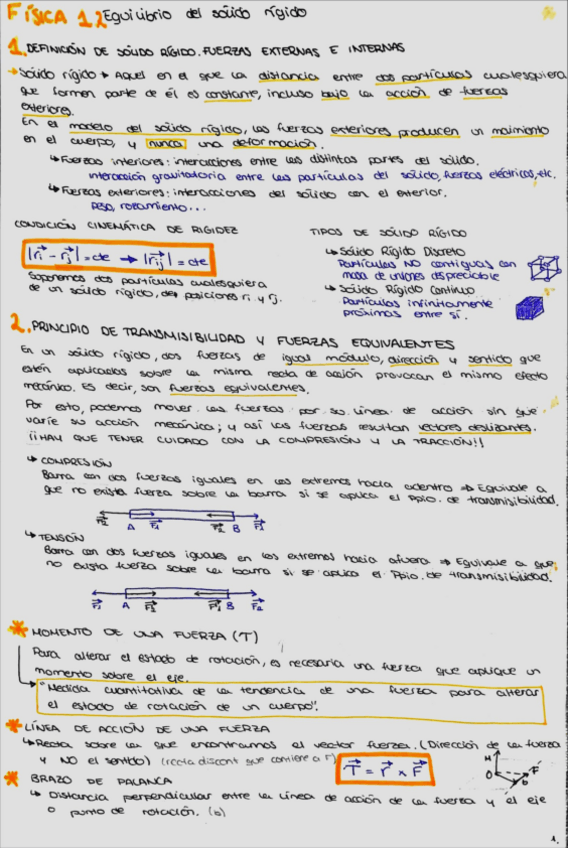 FÍSICA 1.2 Equilibrio del sólido rígido
1. DEFINICIÓN DE SÓLIDO RÍGIDO. FUERZAS EXTERNAS E INTERNAS
→ Sólido rígido → Aquel en el que la distancia entre dos partículas cualesquiera
que formen parte de él es constante, incluso bajo la acción de fuerzas
exteriores.
En el modelo del sólido rígido, las fuerzas exteriores producen un movimiento
en el cuerpo, y nunca una deformación.
↳ Fuerzas interiores: interacciones entre las distintas partes del sólido.
interacción gravitatoria entre las partículas del sólido, fuerzas eléctricas, etc.
↳ Fuerzas exteriores: interacciones del sólido con el exterior.
peso, rozamiento...
CONDICIÓN CINEMÁTICA DE RIGIDEZ
|ri - rj| = cte → |rij| = cte
Suponemos dos partículas cualesquiera
de un sólido rígido, de posiciones ri y rj.
TIPOS DE SÓLIDO RÍGIDO
↳ Sólido Rígido Discreto
Partículas NO contiguas con
masa de uniones despreciable
↳ Sólido Rígido Continuo
Partículas infinitamente
próximas entre sí.
2. PRINCIPIO DE TRANSMISIBILIDAD Y FUERZAS EQUIVALENTES
En un sólido rígido, dos fuerzas de igual módulo, dirección y sentido que
estén aplicadas sobre la misma recta de acción provocan el mismo efecto
mecánico. Es decir, son fuerzas equivalentes.
Por esto, podemos mover las fuerzas por su línea de acción sin que
varíe su acción mecánica; y así las fuerzas resultan vectores deslizantes.
¡¡HAY QUE TENER CUIDADO CON LA COMPRESIÓN Y LA TRACCIÓN!!
↳ COMPRESIÓN
Barra con dos fuerzas iguales en los extremos hacia adentro ⇒ Equivale a
que no exista fuerza sobre la barra si se aplica el Ppio. de transmisibilidad.
F2 A F1 F2 B F1
↳ TENSIÓN
Barra con dos fuerzas iguales en los extremos hacia afuera ⇒ Equivale a que
no exista fuerza sobre la barra si se aplica el Ppio. de transmisibilidad.
F1 A F2 F1 B F2
* MOMENTO DE UNA FUERZA (T)
Para alterar el estado de rotación, es necesaria una fuerza que aplique un
momento sobre el eje.
"Medida cuantitativa de la tendencia de una fuerza para alterar
el estado de rotación de un cuerpo".
* LÍNEA DE ACCIÓN DE UNA FUERZA
↳ Recta sobre la que encontramos el vector fuerza. (Dirección de la fuerza
y NO el sentido) (recta discont que contiene a F)
T = r × F
M O F b
* BRAZO DE PALANCA
↳ Distancia perpendicular entre la línea de acción de la fuerza y el eje
o punto de rotación. (b)
1.